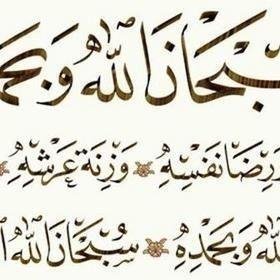 سُبْحَانَ اللَّهِ وَبِحَمْ
رِضَا نَفْسِهِ وَزِنَةَ عَرْشِهِ
وَبِحَمْدِهِ سُبْحَانَ اللَّهِ ا